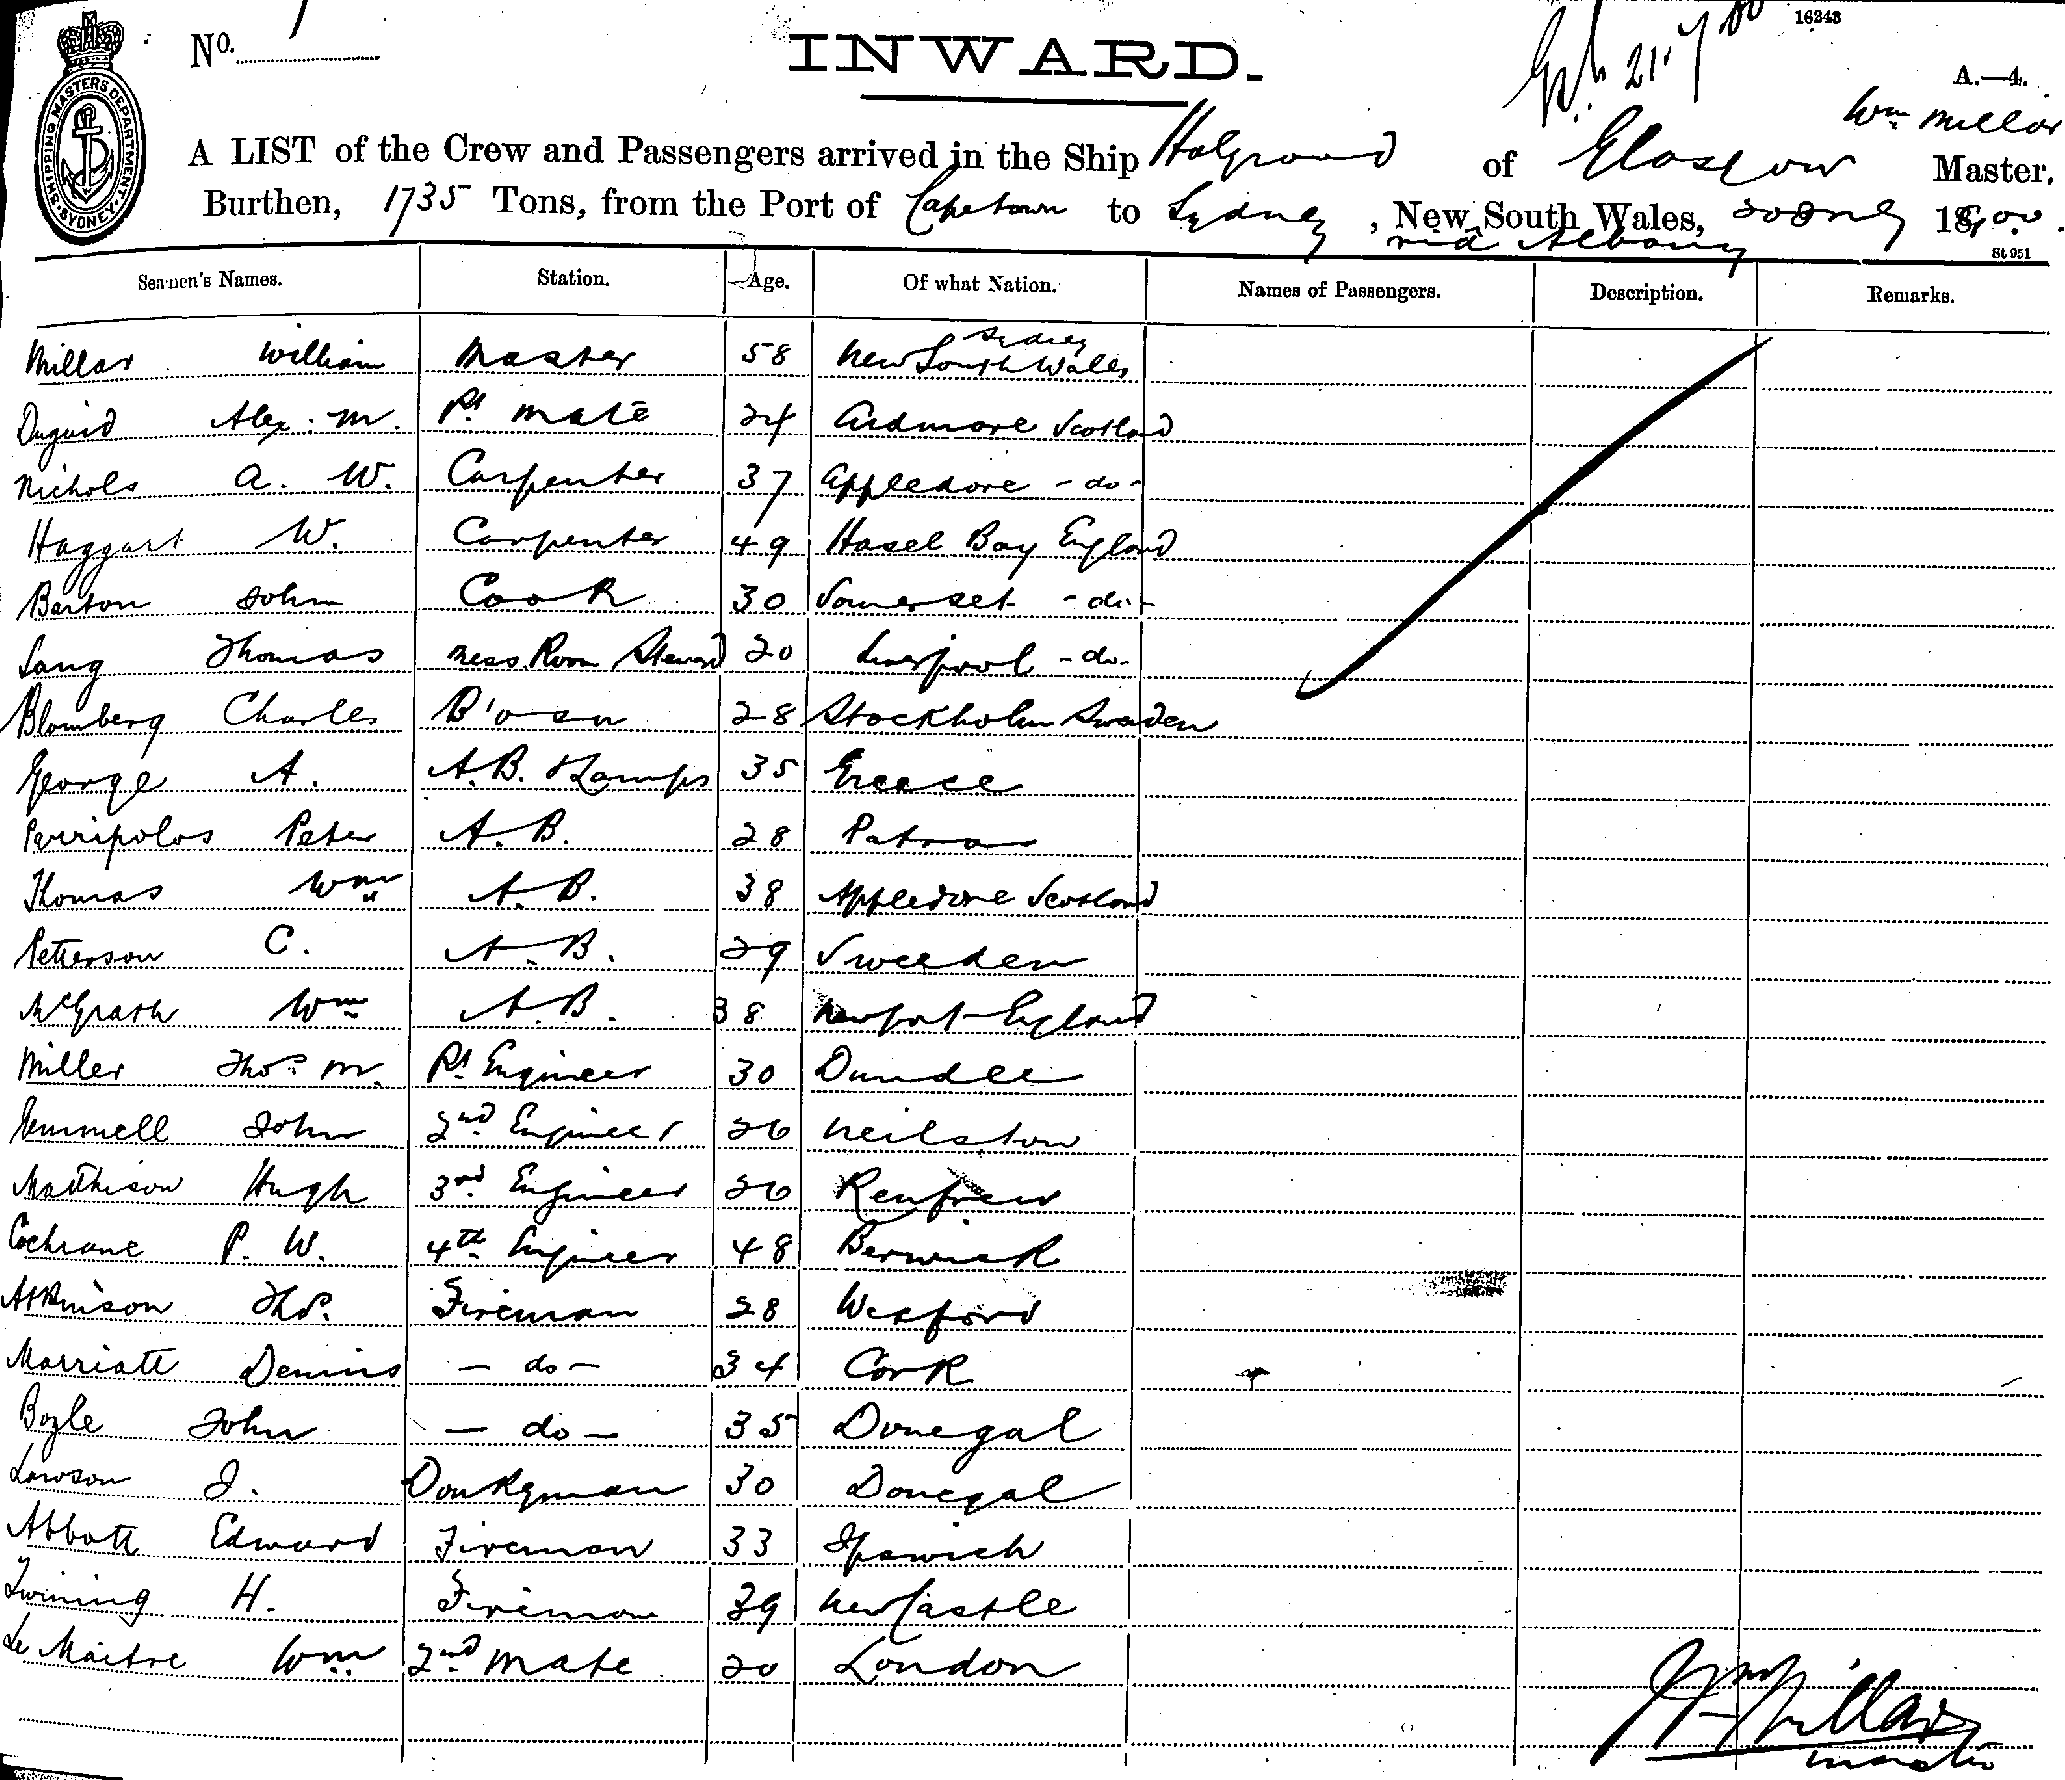 No. 1
INWARD.
16243
A.—4.
SHIPPING MASTERS DEPARTMENT SYDNEY
Wm Millar
A LIST of the Crew and Passengers arrived in the Ship Holgrood of Glasgow Master.
Burthen, 1735 Tons, from the Port of Capetown to Sydney, New South Wales, 20 July
via Albany
St 951
Seamen's Names. Station. Age. Of what Nation. Names of Passengers. Description. Remarks.
Sydney
Millar William Master 58 New South Wales
Duguid Alex. M. Mate 24 Ardmore Scotland
Nichols A. W. Carpenter 37 Appledore -do-
Haggart W. Carpenter 49 Hasel Bay England
Barton John Cook 30 Somerset -do-
Lang Thomas Mess Room Steward 20 Liverpool -do-
Blomberg Charles B'osn 28 Stockholm Sweden
George A. A.B. & Lamps 35 Greece
Perripolos Peter A.B. 28 Patras
Thomas Wm A.B. 38 Appledore Scotland
Petterson C. A.B. 29 Sweeden
McGrath Wm A.B. 38 Newport England
Miller Thos M. Engineer 30 Dundee
Gemmell John 2nd Engineer 26 Neilston
Mathieson Hugh 3rd Engineer 26 Renfrew
Cochrane P. W. 4th Engineer 48 Berwick
Atkinson Thos. Fireman 28 Wexford
Marriatt Dennis - do - 34 Cork
Bogle John - do - 35 Donegal
Lawson J. Donkeyman 30 Donegal
Abbott Edward Fireman 33 Ipswich
Twining H. Fireman 39 Newcastle
Le Maitre Wm 2nd Mate 20 London
Wm Millar
Master